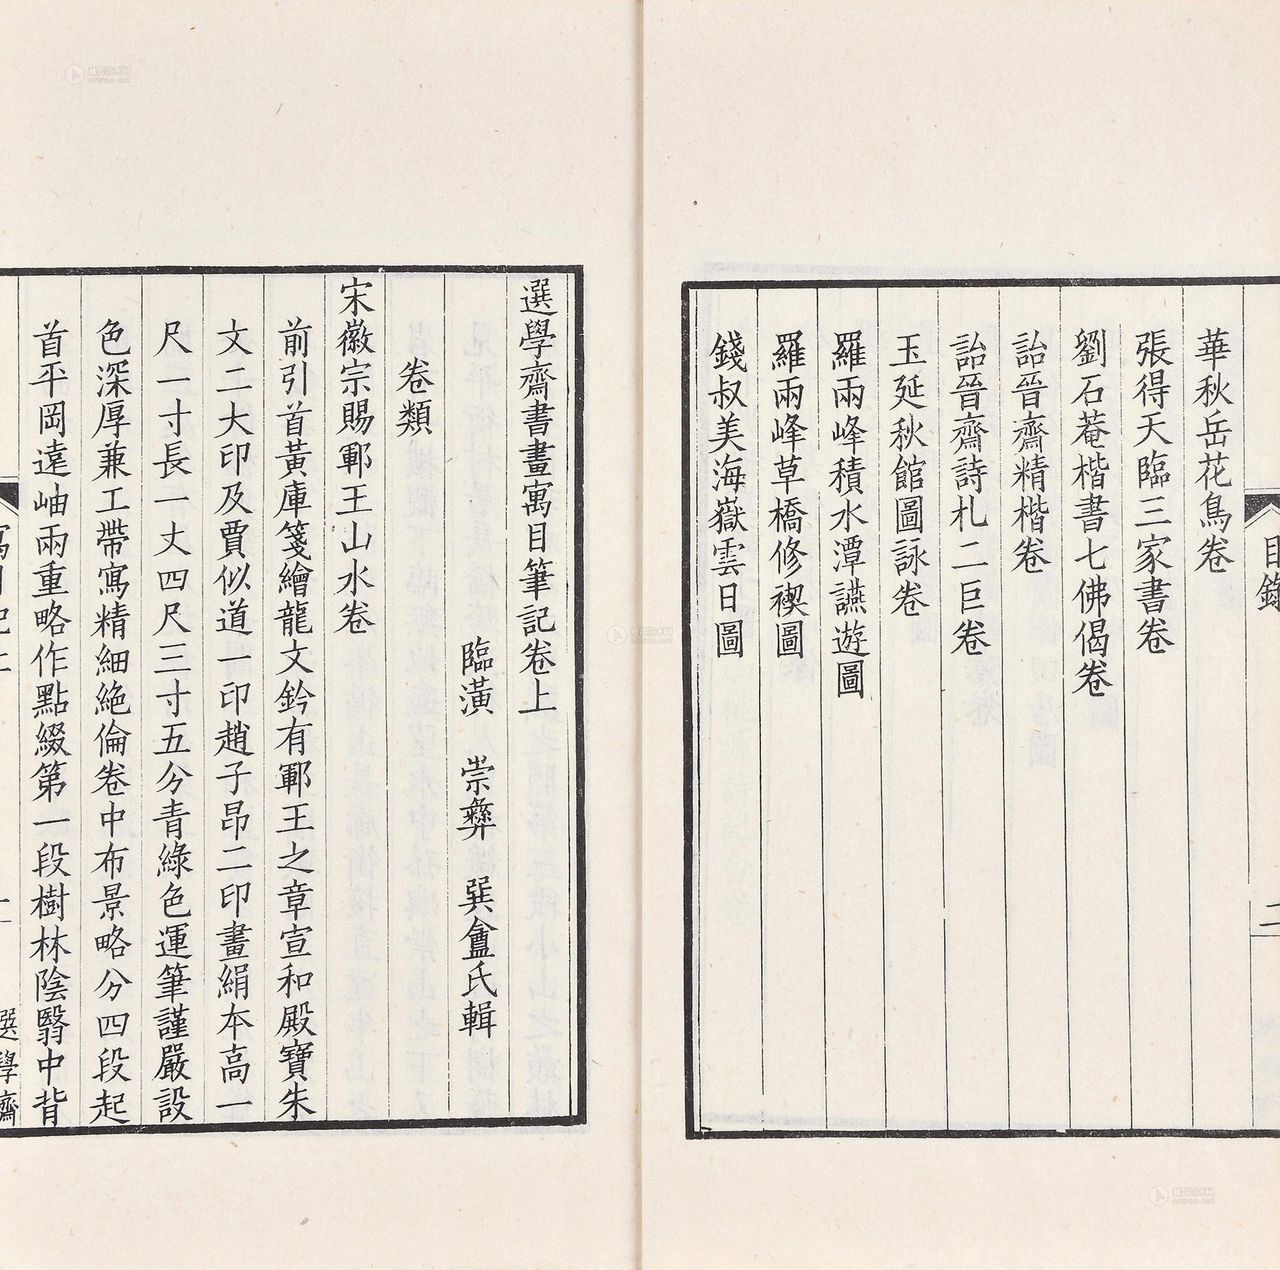 目錄
二
華秋岳花鳥卷
張得天臨三家書卷
劉石菴楷書七佛偈卷
詒晉齋精楷卷
詒晉齋詩札二巨卷
玉延秋館圖詠卷
羅兩峰積水潭讌遊圖
羅兩峰草橋修禊圖
錢叔美海嶽雲日圖
選學齋書畫寓目筆記卷上
臨潢　崇彝　巽盦氏輯
卷類
宋徽宗賜鄆王山水卷
前引首黃庫箋繪龍文鈐有鄆王之章宣和殿寶朱
文二大印及賈似道一印趙子昂二印畫絹本高一
尺一寸長一丈四尺三寸五分青綠色運筆謹嚴設
色深厚兼工帶寫精細絕倫卷中布景略分四段起
首平岡遠岫兩重略作點綴第一段樹林陰翳中背
寓目記上
一
選學齋